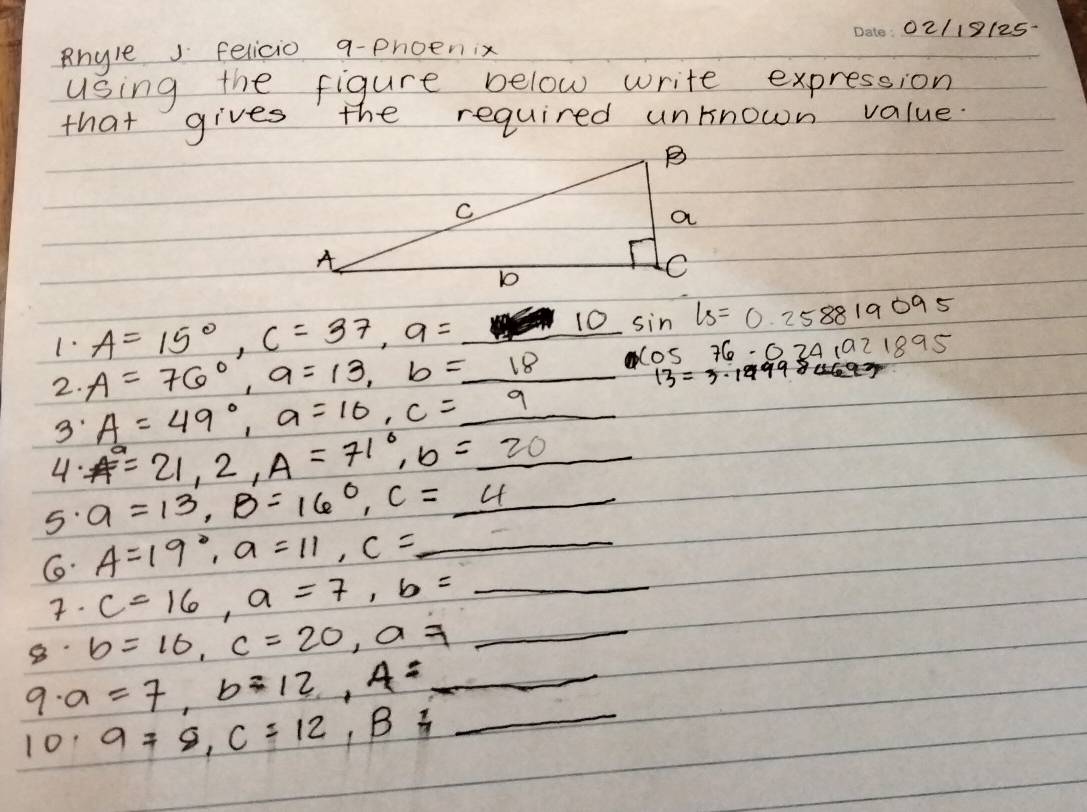 Date: 02/18/25-
Rhyle J. Felicio 9-Phoenix
Using the figure below write expression
that gives the required unknown value.
B
c
a
A
C
b
1. A = 15°, C = 37, a = 10 sin 15 = 0.258819095
2. A = 76°, a = 13, b = 18 cos 76 - 0.241921895
13 =
3. A = 49°, a = 10, c = 9
4. a = 21, 2, A = 71°, b = 20
5. a = 13, B = 16°, C = 4
6. A = 19°, a = 11, C =
7. C = 16, a = 7, b =
8. b = 10, c = 20, a =
9. a = 7, b = 12, A =
10. a = 8, C = 12, B =